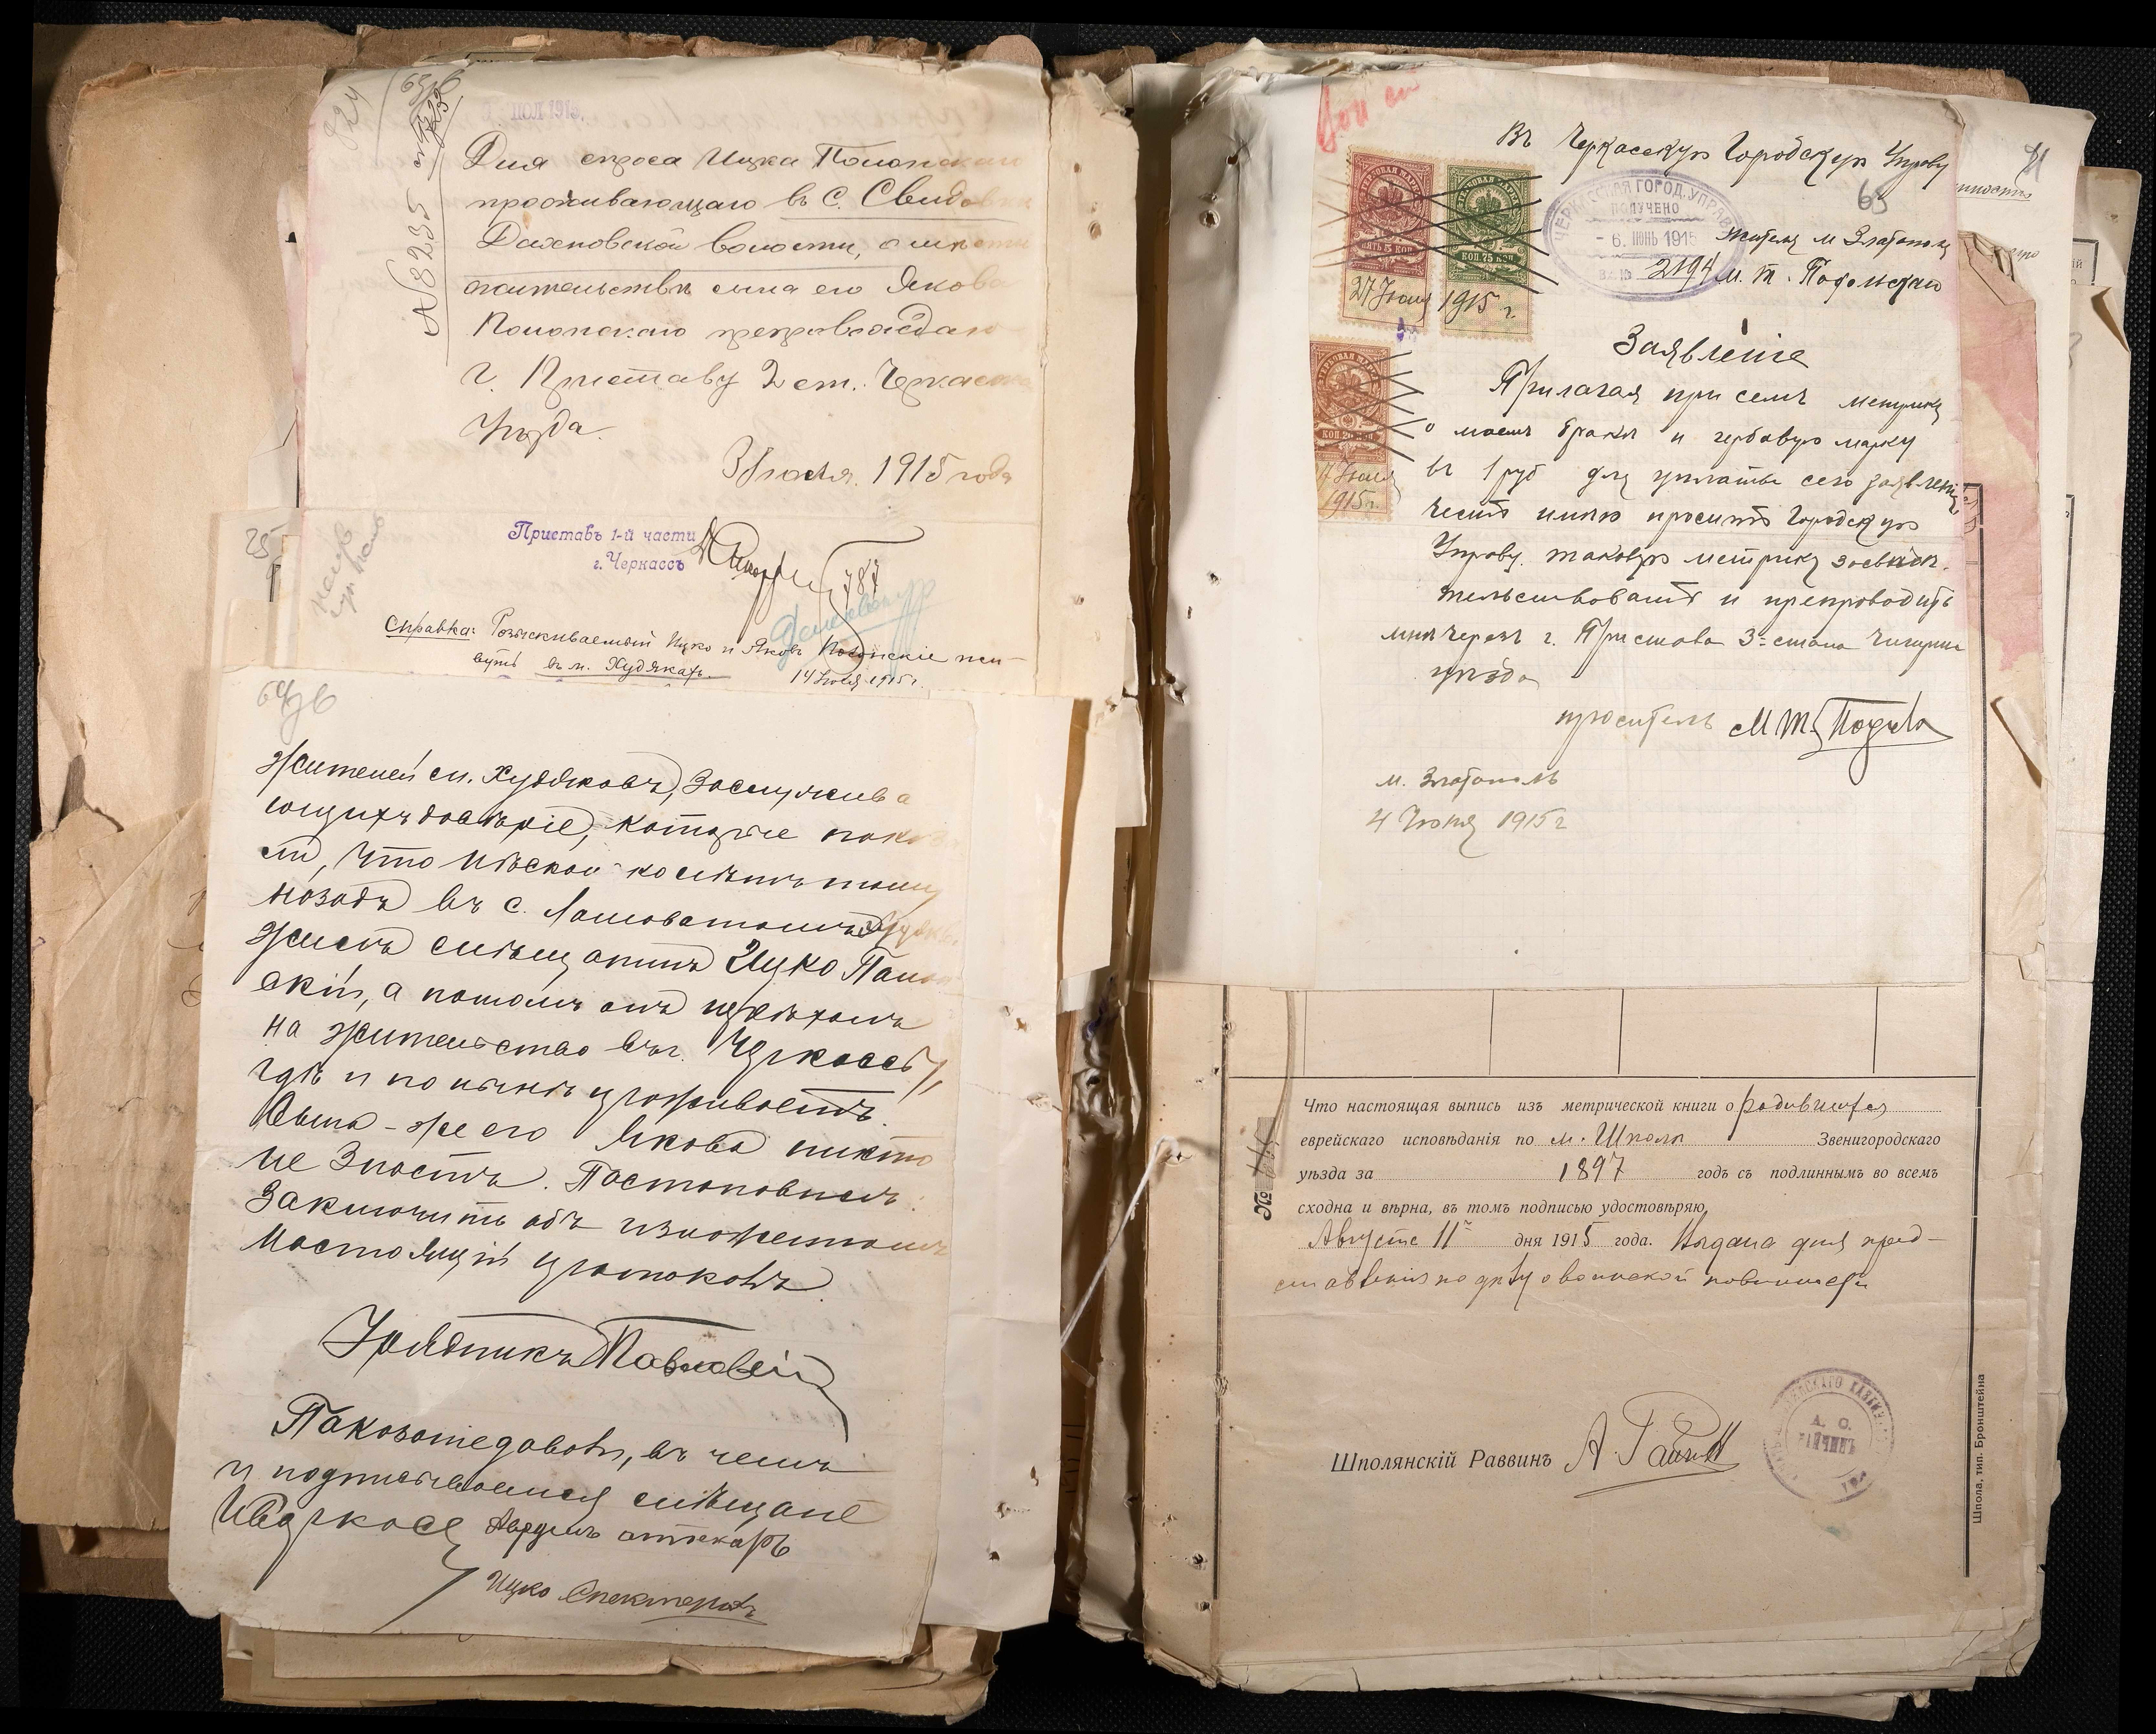 63 об
№ 8235
ІЮЛ 1915
Для спроса Ицка Полонскаго
проживающаго въ с. Свидовкѣ
Дахновской волости, о мѣстѣ
жительствѣ сына его Якова
Полонскаго препровождаю
г. Приставу 2 ст. Черкасск
Уѣзда.
3 Іюля. 1915 года
Приставъ 1-й части
г. Черкассъ
787
Справка: Розыскиваемый Ицко и Яковъ Полонскіе жи-
вутъ въ м. Худякахъ.
14 Іюля 1915 г.
25
64 об
жителей сл. Худяковъ, заслужива
ющихъ довѣріе, которые показа
ли, что нѣсколько лѣтъ тому
назадъ въ с. Ломоватомъ
жилъ мѣщанинъ Ицко Полон
скій, а потомъ онъ уѣхалъ
на жительство въ г. Черкассы,
гдѣ и по нынѣ проживаетъ.
Сына-же его Якова никто
не знаетъ. Постановилъ:
Заключить объ изложенномъ
настоящій протоколъ.
Урядникъ Павловскій
Показали добавъ, въ чемъ
и подписываемся мѣщане
аптекарь
Ицко Спекторъ
Въ Черкасскую Городскую Управу
65
ЧЕРКАССКАЯ ГОРОД. УПРАВА
ПОЛУЧЕНО
- 6. ІЮНЬ 1915
Вх. № 2194
Жителя м Златополя
М. Т. Подольскаго
ГЕРБОВАЯ МАРКА
ПЯТЬ 5 КОП.
ГЕРБОВАЯ МАРКА
КОП. 75 КОП.
27 Іюня 1915 г
ГЕРБОВАЯ МАРКА
КОП. 20 КОП.
27 Іюня
1915 г.
Заявленіе
Прилагая при семъ метрику
о моемъ бракѣ и гербовую марку
въ 1 руб для уплаты сего заявленія
честь имѣю просить Городскую
Управу таковую метрику засвидѣ-
тельствовать и препроводить
мнѣ черезъ г. Пристава 3-стана Чигирин
уѣзда
проситель М Т Подол
м. Златополь
4 Іюня 1915 г
81
№
Что настоящая выпись изъ метрической книги о родившихся
еврейскаго исповѣданія по м. Шполѣ Звенигородскаго
уѣзда за 1897 годъ съ подлиннымъ во всемъ
сходна и вѣрна, въ томъ подписью удостовѣряю,
Августа 11 дня 1915 года. Выдана для пред-
ставленія по дѣлу о воинской повинности
Шполянскій Раввинъ
Шпола, тип. Бронштейна